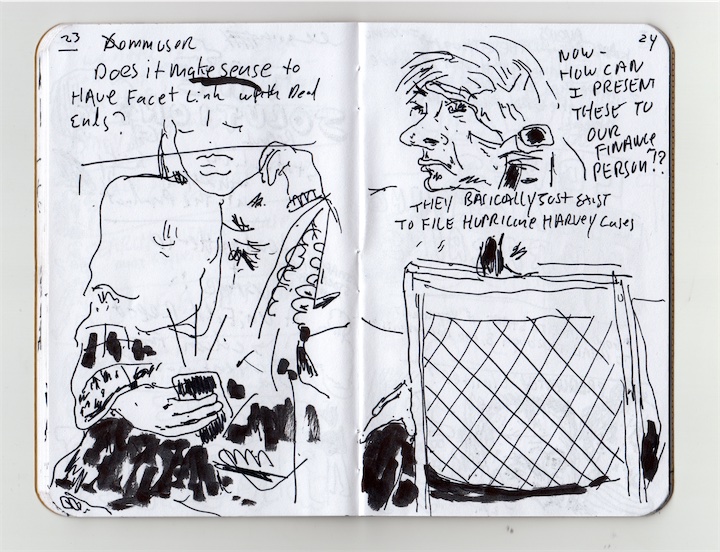 23
Does it make sense to
HAVE Facet Link with Dead
Ends?
24
NOW -
HOW CAN
I PRESENT
THESE TO
OUR
FINANCE
PERSON!?
THEY BASICALLY JUST EXIST
TO FILE HURRICANE HARVEY CASES